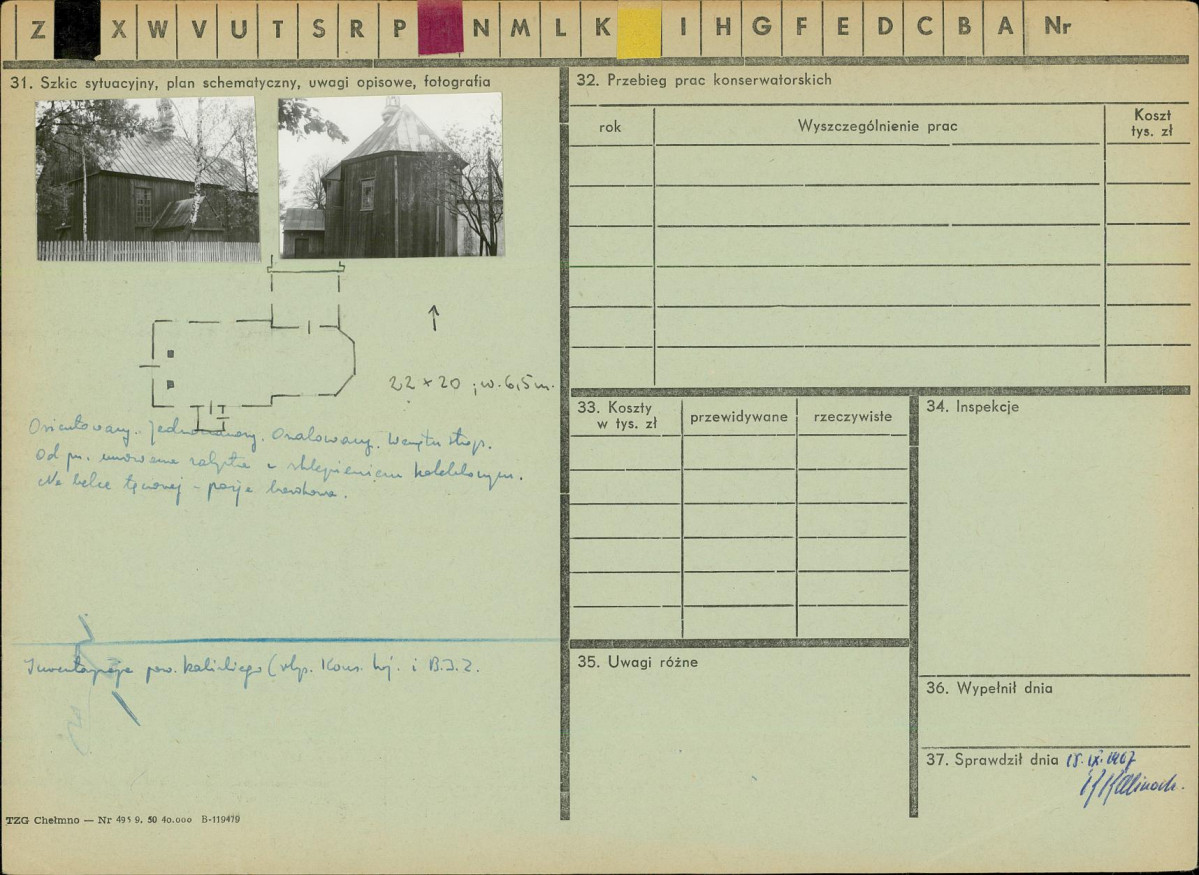 Z X W V U T S R P N M L K I H G F E D C B A Nr
31. Szkic sytuacyjny, plan schematyczny, uwagi opisowe, fotografia
22 × 20 ; w. 6,5 m.
Orientowany. Jednonawowy. Oszalowany. Wewnątrz strop.
Od pn. murowana kaplica z sklepieniem kolebkowym.
Na belce tęczowej – pasja barokowa.
Inwentaryzacja pow. kaliskiego (egz. Kons. Woj. i B.I.Z.
TZG Chełmno — Nr 495 9. 50 40.000 B-119479
32. Przebieg prac konserwatorskich
rok Wyszczególnienie prac Koszt tys. zł
33. Koszty w tys. zł przewidywane rzeczywiste
34. Inspekcje
35. Uwagi różne
36. Wypełnił dnia
37. Sprawdził dnia 15.IX.1967